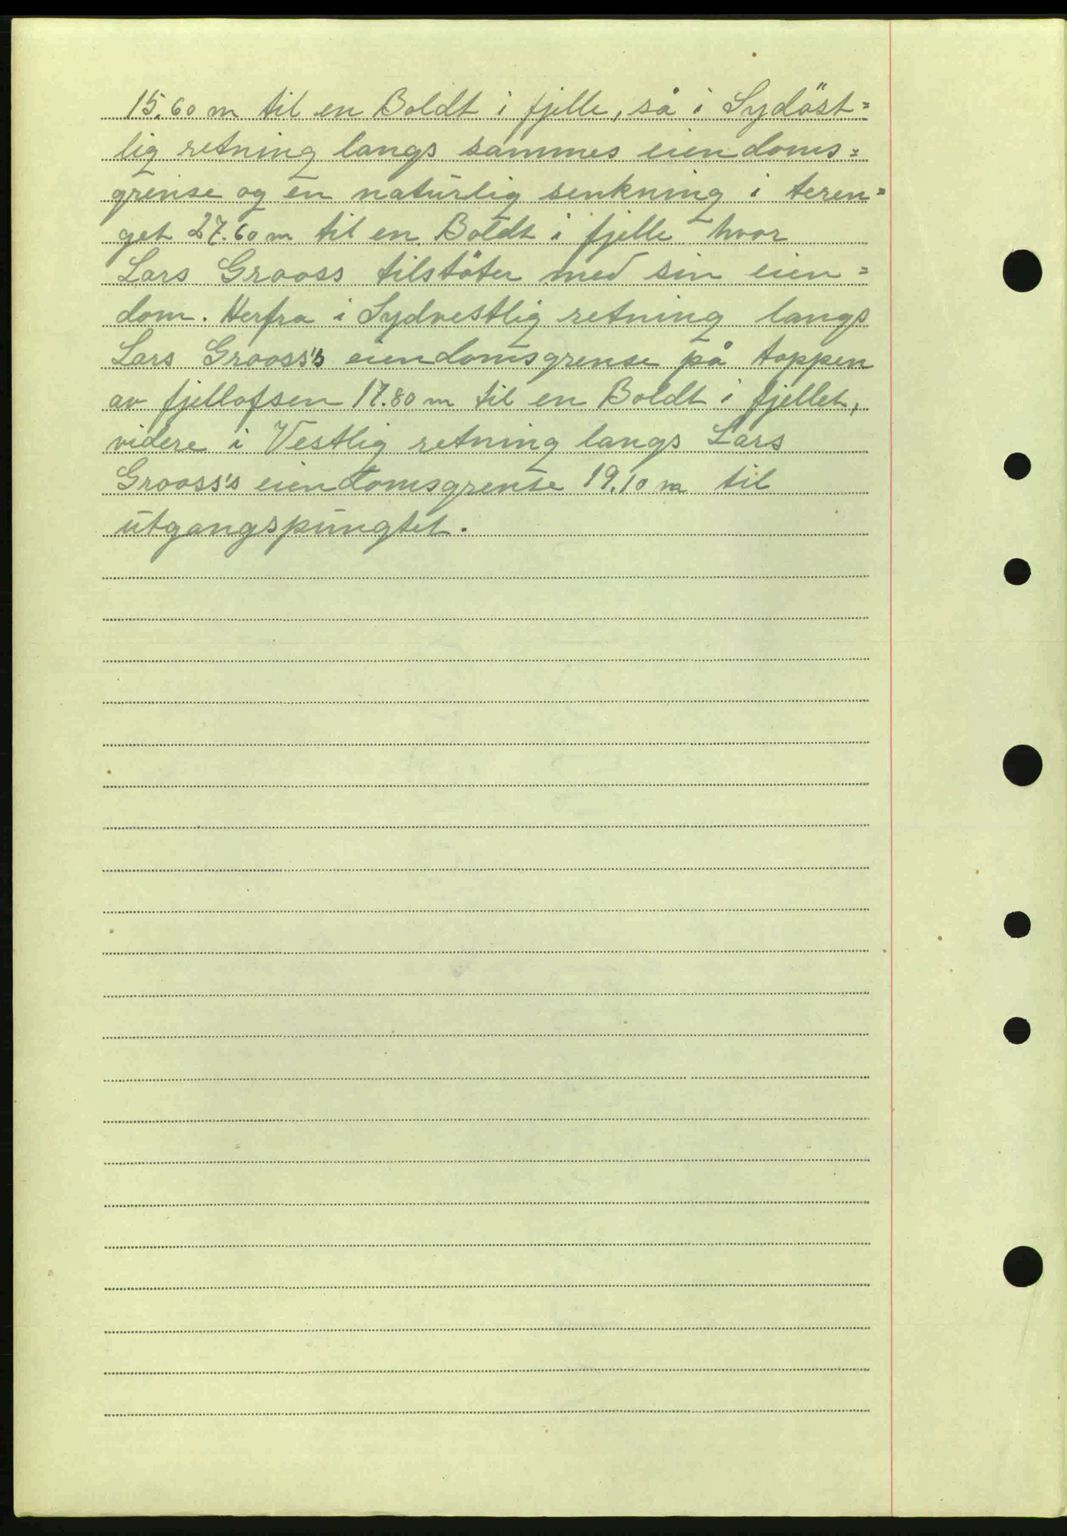 15.60 m til en Boldt i fjelle, så i Sydöst=
lig retning langs sammes eiendoms=
grense og en naturlig senkning i teren=
get 27.60 m til en Boldt i fjelle hvor
Lars Grooss tilstöter med sin eien=
dom. Herfra i Sydvestlig retning langs
Lars Grooss's eiendomsgrense på toppen
av fjellofsen 17.80 m til en Boldt i fjellet,
videre i Vestlig retning langs Lars
Grooss's eiendomsgrense 19.10 m til
utgangspungtet.